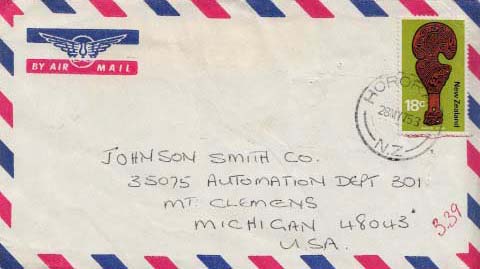 BY AIR MAIL
18c
New Zealand
28MY75
N.Z.
JOHNSON SMITH CO.
35075 AUTOMATION DEPT 301
MT. CLEMENS
MICHIGAN 48043
U.S.A.
3.39